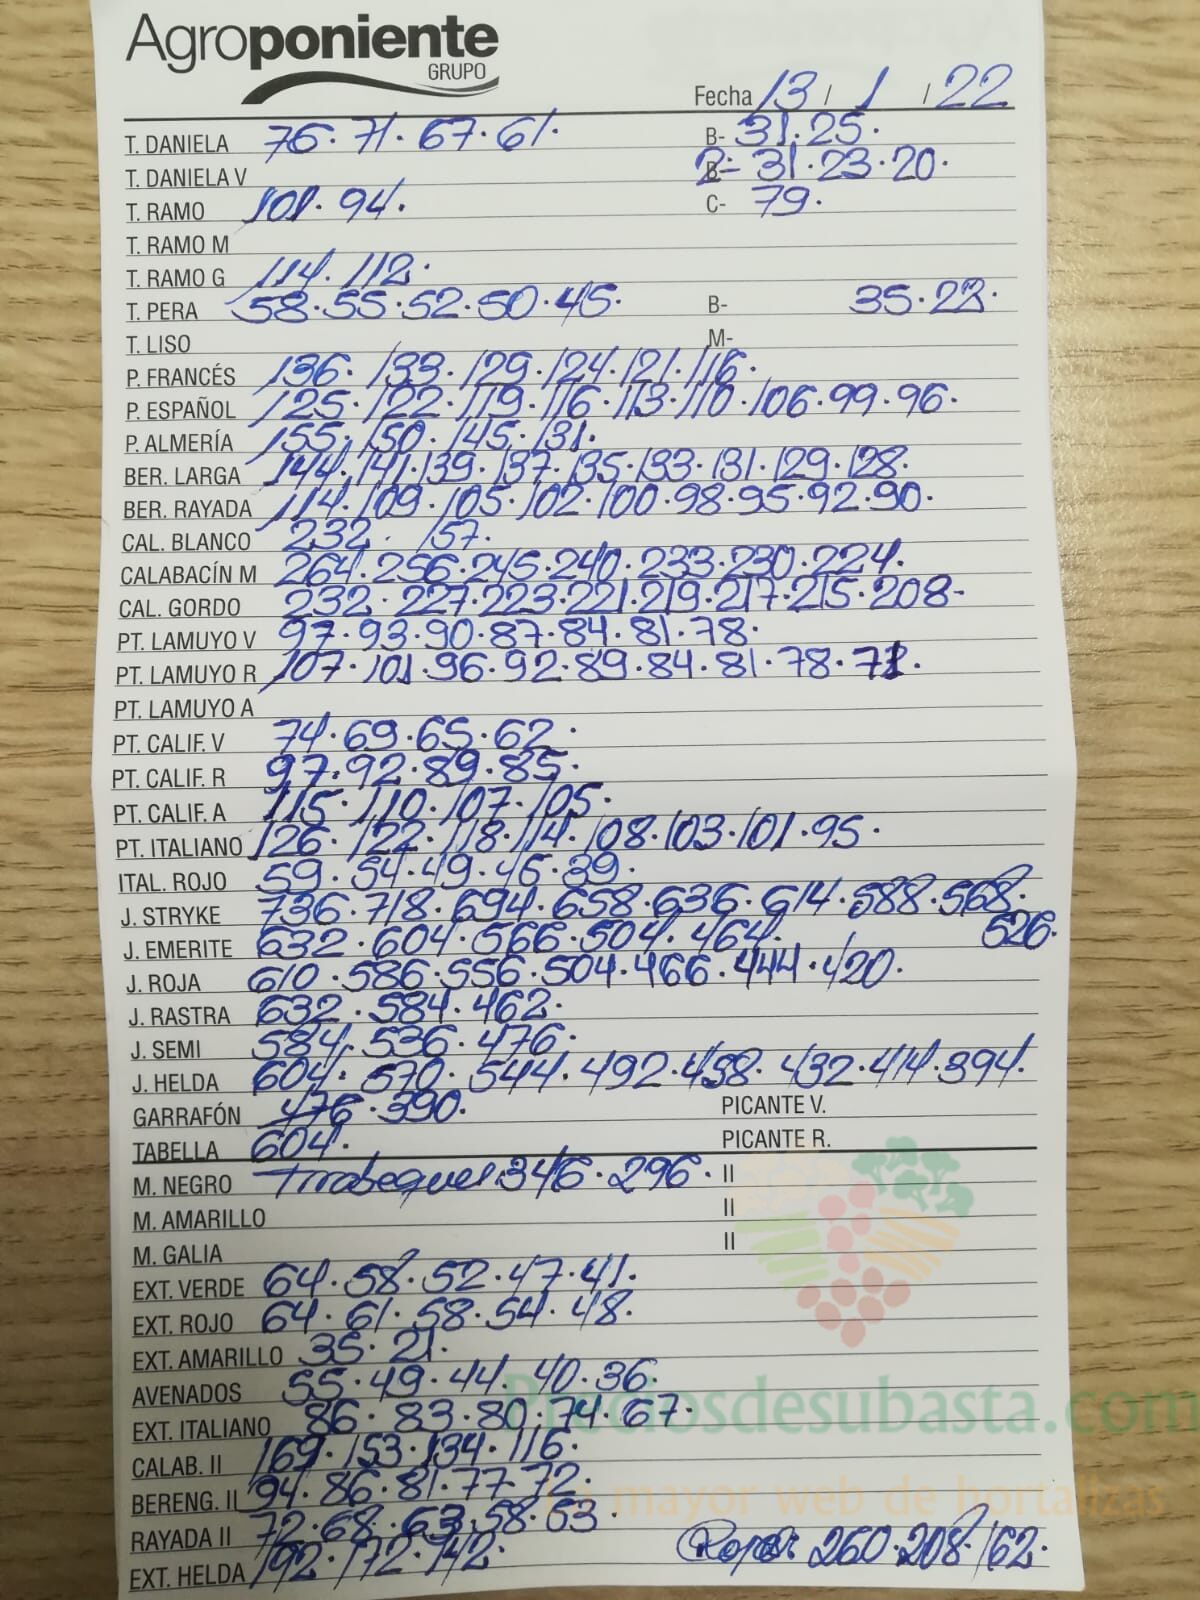 Agroponiente
GRUPO
Fecha 13 / 1 / 22
T. DANIELA 76. 71. 67. 61. B- 31. 25.
T. DANIELA V 2- 31. 23. 20.
T. RAMO 101. 94. C- 79.
T. RAMO M
T. RAMO G 114. 112.
T. PERA 58. 55. 52. 50. 45. B- 35. 23.
T. LISO M-
P. FRANCÉS 136. 133. 129. 124. 121. 116.
P. ESPAÑOL 125. 122. 119. 116. 113. 110. 106. 99. 96.
P. ALMERÍA 155. 150. 145. 131.
BER. LARGA 144. 141. 139. 137. 135. 133. 131. 129. 128.
BER. RAYADA 114. 109. 105. 102. 100. 98. 95. 92. 90.
CAL. BLANCO 232. 157.
CALABACÍN M 264. 256. 245. 240. 233. 230. 224.
CAL. GORDO 232. 227. 223. 221. 219. 217. 215. 208-
PT. LAMUYO V 97. 93. 90. 87. 84. 81. 78.
PT. LAMUYO R 107. 101. 96. 92. 89. 84. 81. 78.
PT. LAMUYO A
PT. CALIF. V 74. 69. 65. 62.
PT. CALIF. R 97. 92. 89. 85.
PT. CALIF. A 115. 110. 107. 105.
PT. ITALIANO 126. 122. 118. 114. 108. 103. 101. 95.
ITAL. ROJO 59. 54. 49. 46. 39.
J. STRYKE 736. 718. 694. 658. 636. 614. 588. 568.
526.
J. EMERITE 632. 604. 566. 504. 464.
J. ROJA 610. 586. 556. 504. 466. 444. 420.
J. RASTRA 632. 584. 462.
J. SEMI 584. 536. 476.
J. HELDA 604. 570. 544. 492. 458. 432. 414. 394.
GARRAFÓN 476. 390. PICANTE V.
TABELLA 604. PICANTE R.
M. NEGRO Tirabeques 346. 296. II
M. AMARILLO II
M. GALIA II
EXT. VERDE 64. 58. 52. 47. 41.
EXT. ROJO 64. 61. 58. 54. 48.
EXT. AMARILLO 35. 21.
AVENADOS 55. 49. 44. 40. 36.
Preciosdesubasta.com
EXT. ITALIANO 86. 83. 80. 74. 67.
CALAB. II 169. 153. 134. 116.
BERENG. II 94. 86. 81. 77. 72.
La mayor web de hortalizas
RAYADA II 72. 68. 63. 58. 53.
EXT. HELDA 192. 172. 142. 260. 208. 162.